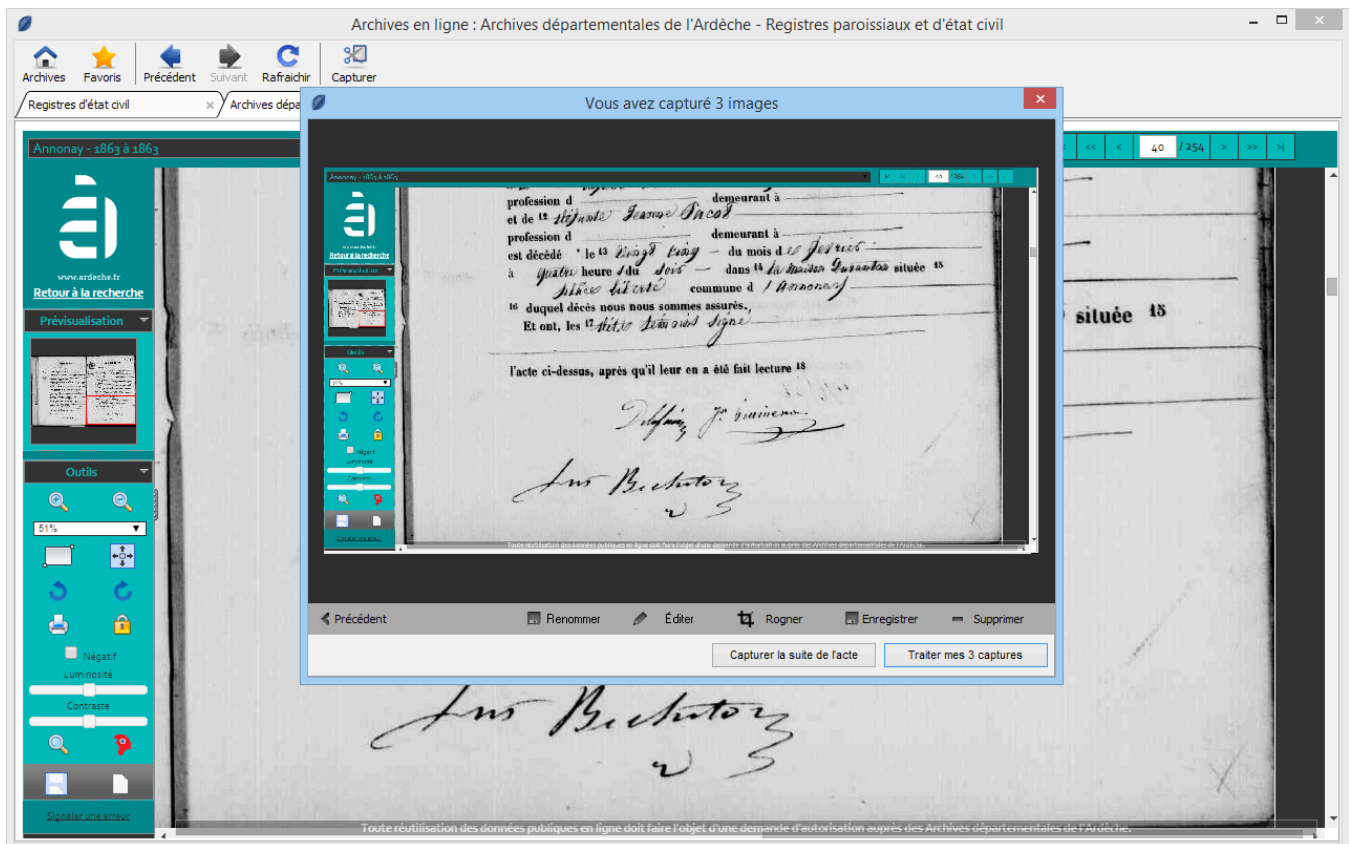 Archives en ligne : Archives départementales de l'Ardèche - Registres paroissiaux et d'état civil
Archives Favoris Précédent Suivant Rafraichir Capturer
Registres d'état civil × Archives dépa
Vous avez capturé 3 images
Annonay - 1863 à 1863
<< < 40 / 254 > >> >|
www.ardeche.fr
Retour à la recherche
Prévisualisation
Outils
51%
Négatif
Luminosité
Contraste
Signaler une erreur
Annonay - 1863 à 1863
40 / 254
www.ardeche.fr
Retour à la recherche
Prévisualisation
Outils
51%
Négatif
Luminosité
Contraste
profession d demeurant à
et de 12 défunte Jeanne
profession d demeurant à
est décédé le 13 Vingt Cinq du mois de février
à quatre heure du Soir dans 14 la maison située 15
place liberté commune d'Annonay
16 duquel décès nous nous sommes assurés.,
Et ont, les 17 témoins signé
l'acte ci-dessus, après qu'il leur en a été fait lecture 18
Toute réutilisation des données publiques en ligne doit faire l'objet d'une demande d'autorisation auprès des Archives départementales de l'Ardèche.
Précédent Renommer Éditer Rogner Enregistrer Supprimer
Capturer la suite de l'acte Traiter mes 3 captures
située 15
Toute réutilisation des données publiques en ligne doit faire l'objet d'une demande d'autorisation auprès des Archives départementales de l'Ardèche.